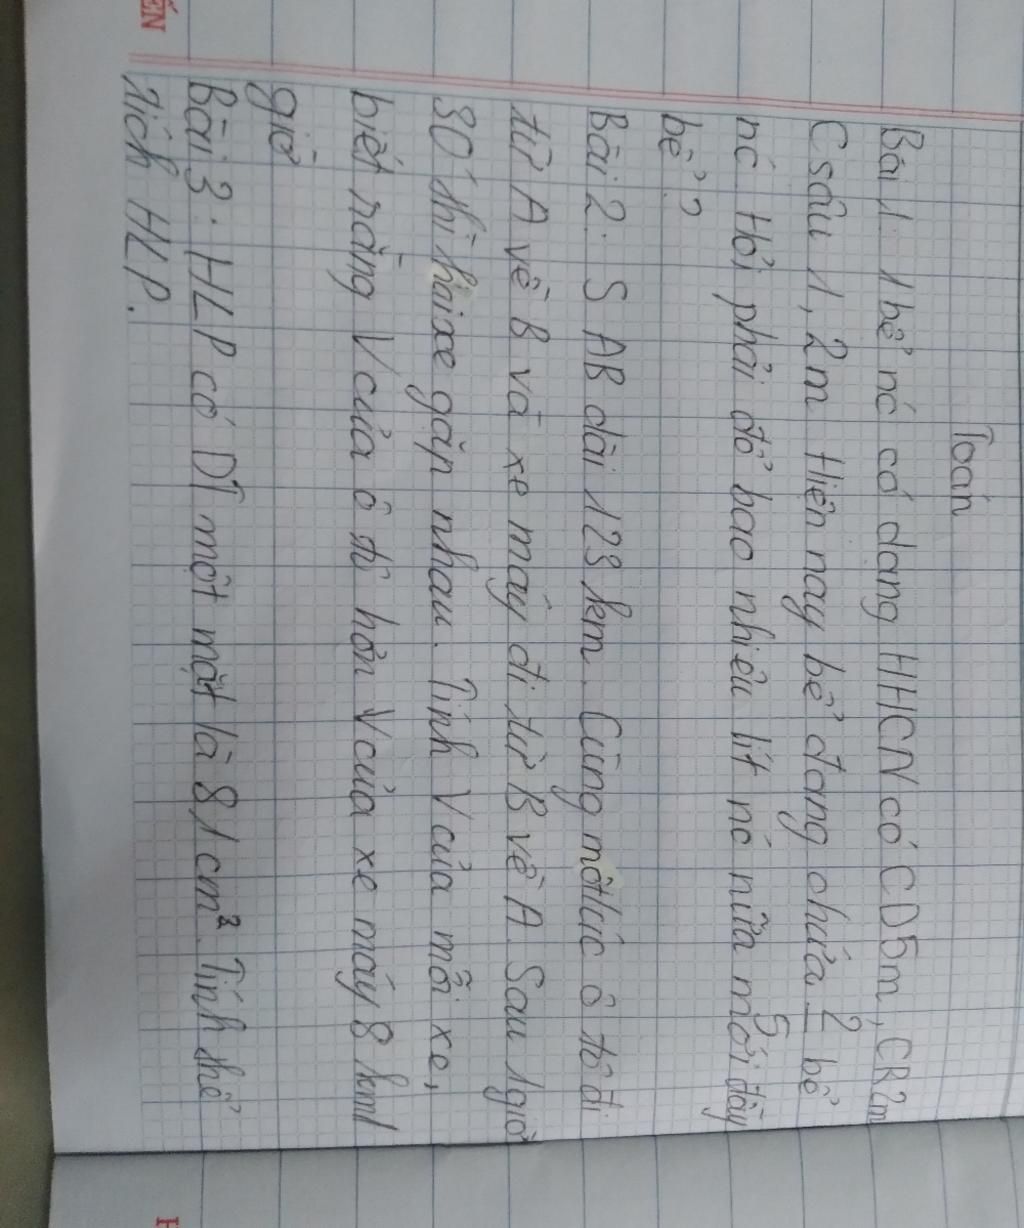 Toán
Bài 1: 1 bể nc có dạng HHCN có CD 5m, CR 2m
C sâu 1,2m Hiện nay bể đang chứa 2/5 bể
nc Hỏi phải đổ bao nhiêu lít nc nữa mới đầy
bể ?
Bài 2: S AB dài 123 km. Cùng một lúc ô tô đi
từ A về B và xe máy đi từ B về A. Sau 1 giờ
30' thì hai xe gặp nhau. Tính V của mỗi xe,
biết rằng V của ô tô hơn V của xe máy 8 km/
giờ
Bài 3: HLP có DT một mặt là 8,1 cm². Tính thể
tích HLP.
ẾN